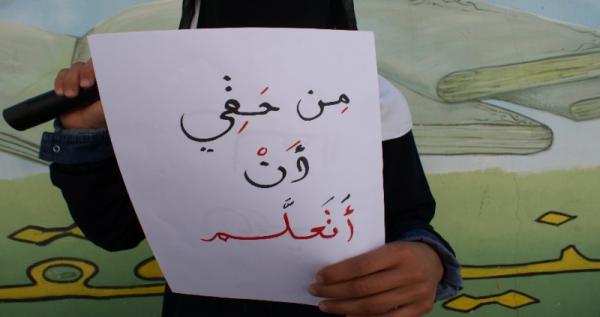 مِن حَقِّي
أَنْ
أَتَعَلَّم